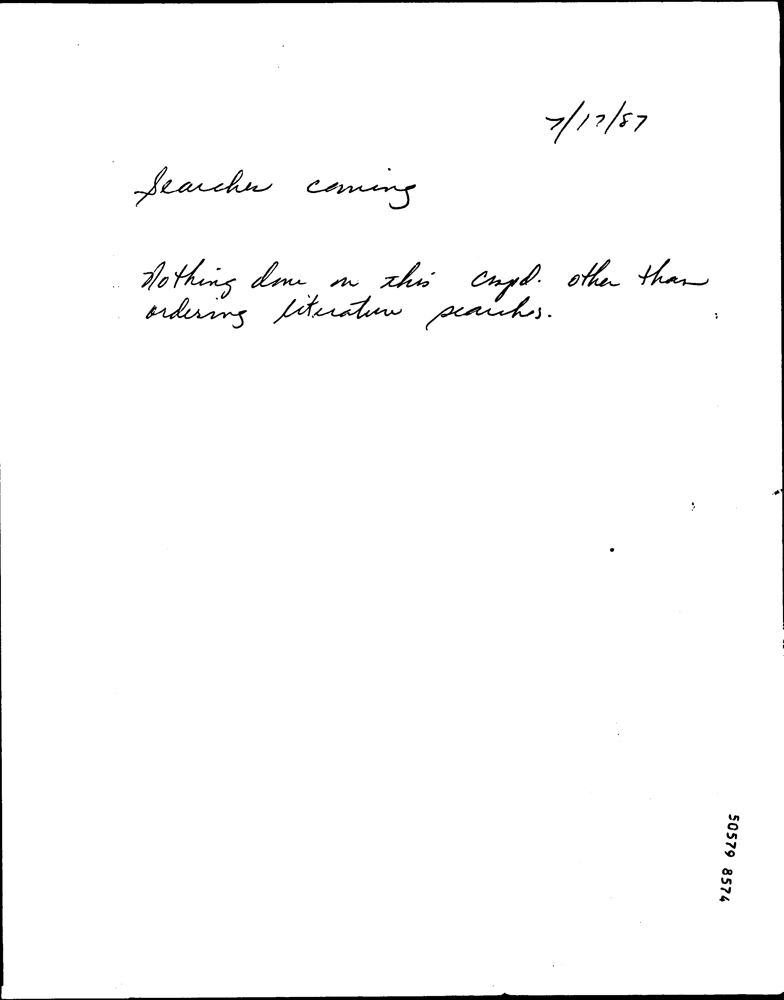 7/17/87
Searches coming
Nothing done on this cmpd. other than
ordering literature searches.
50579 8574